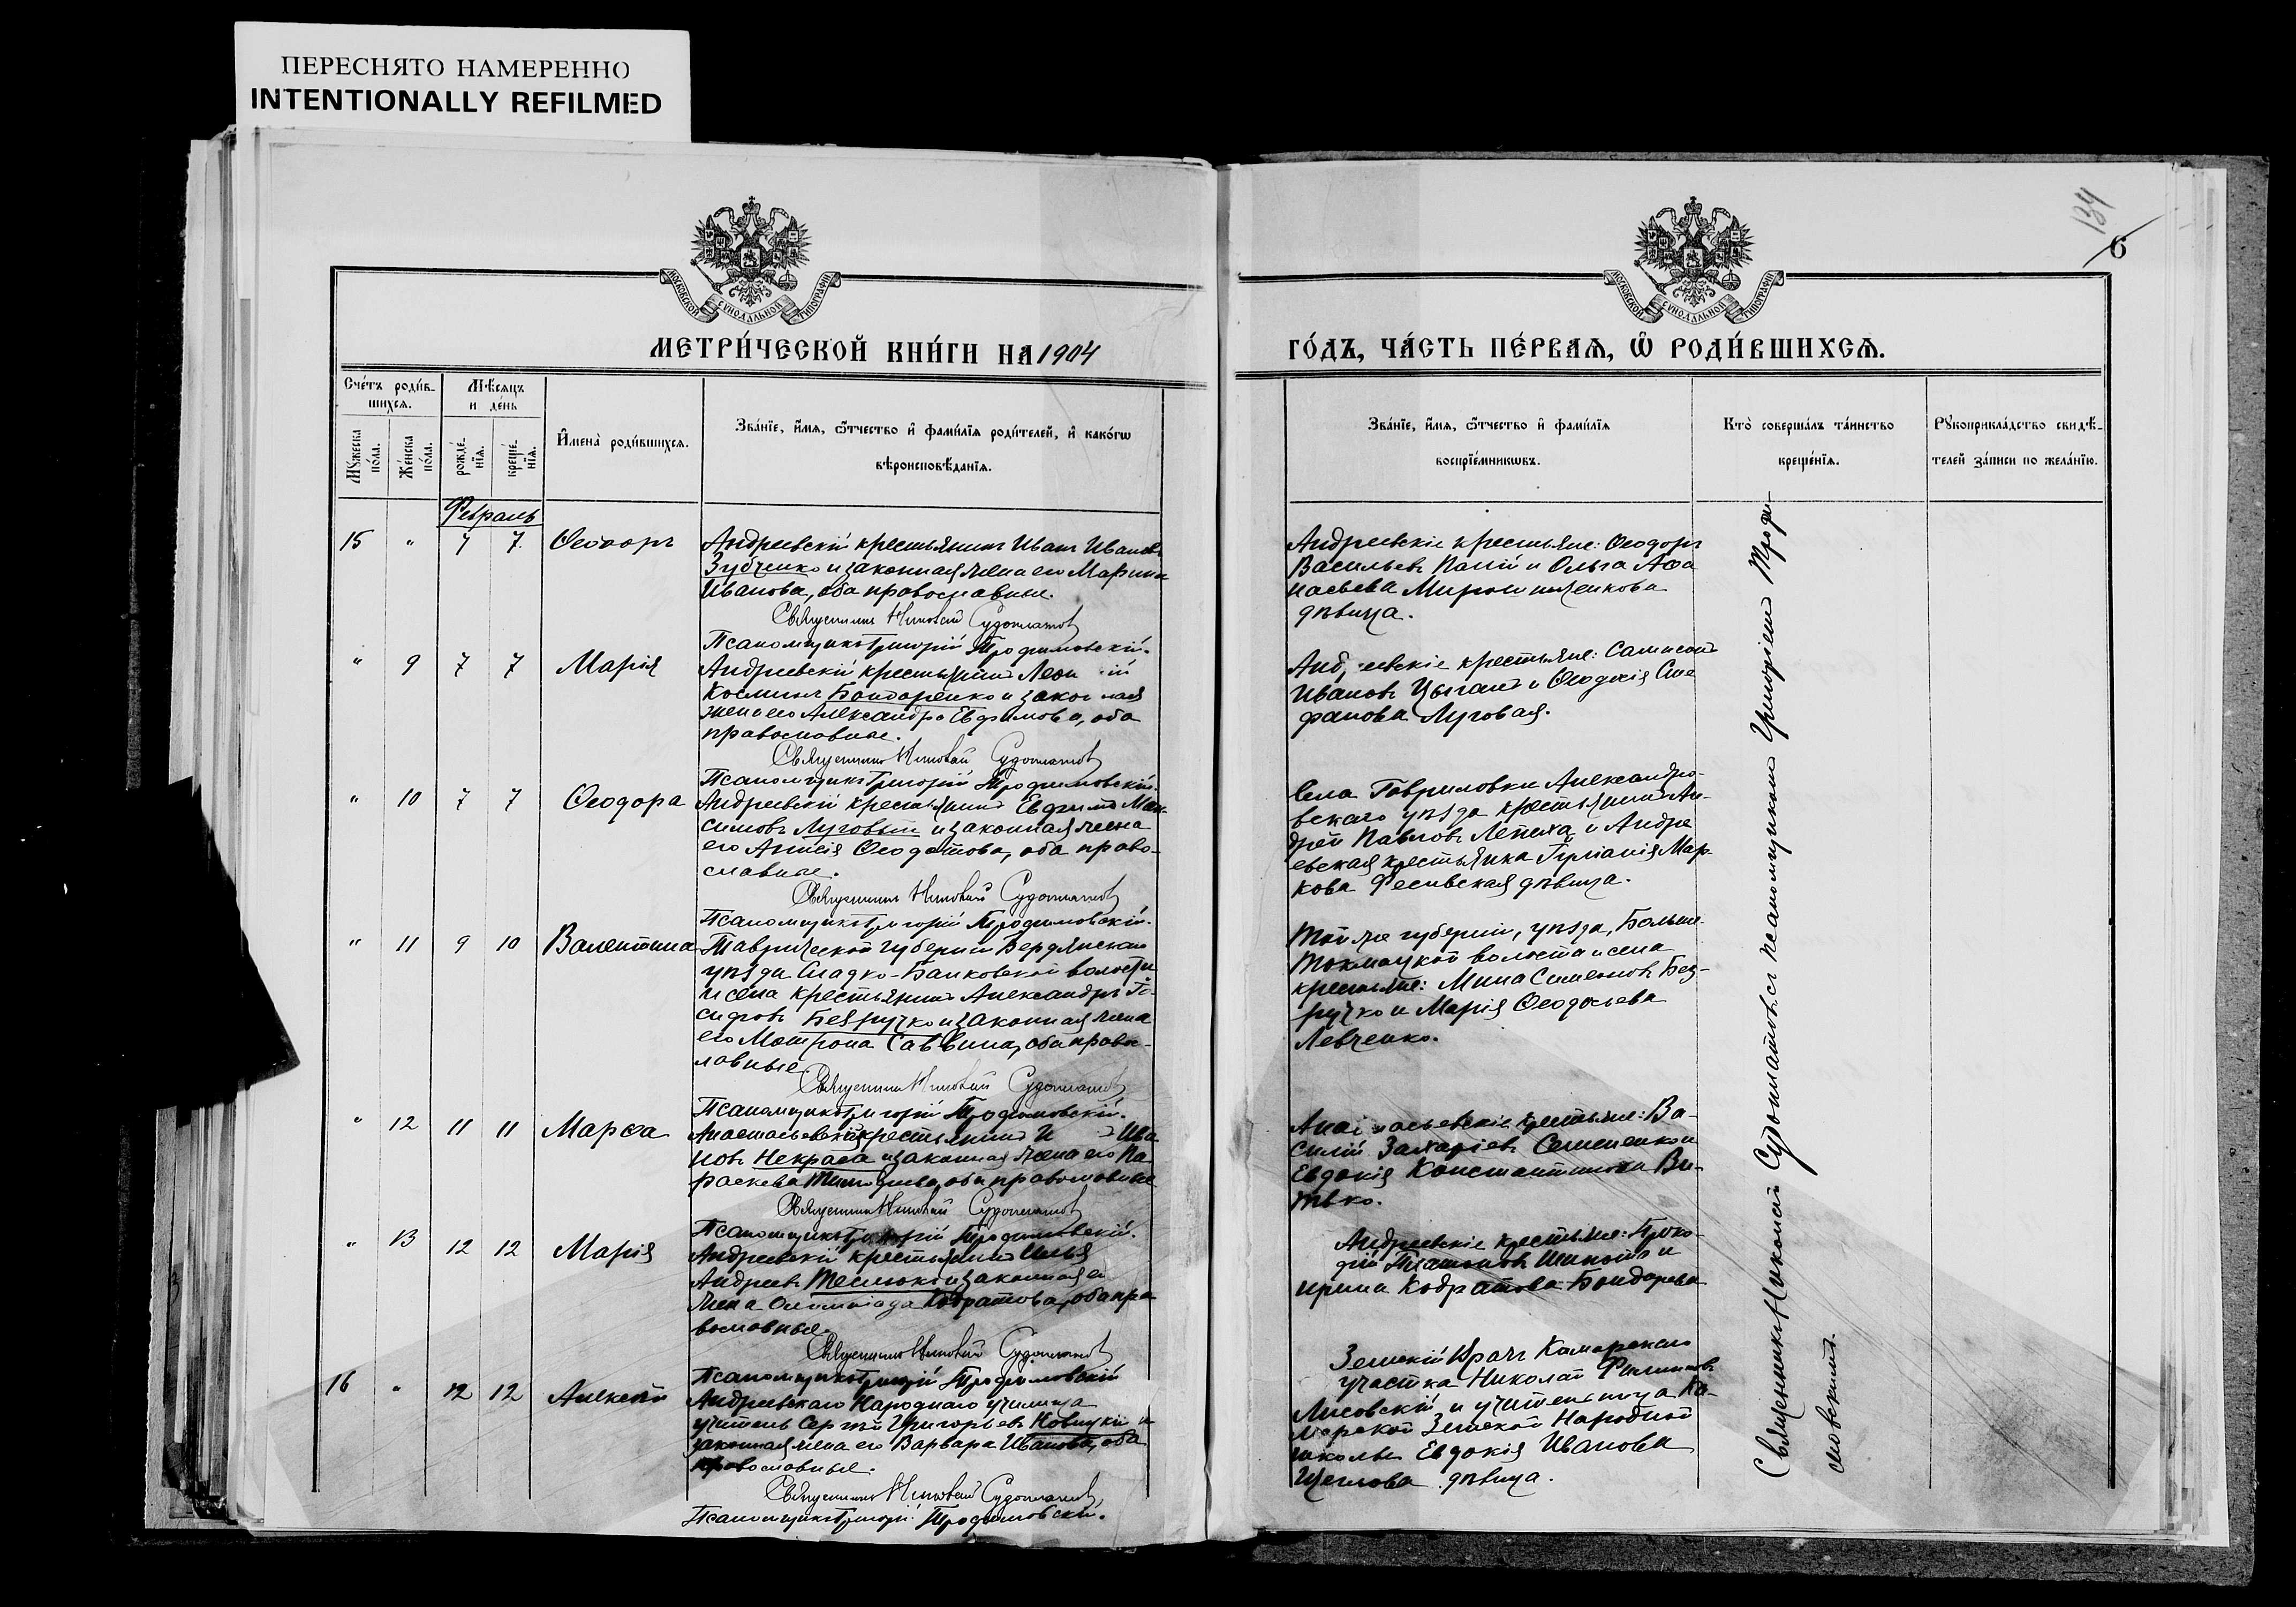 ПЕРЕСНЯТО НАМЕРЕННО
INTENTIONALLY REFILMED
МОСКОВСКОЙ СѴНОДАЛЬНОЙ ТИПОГРАФІИ
МЕТРИ́ЧЕСКОЙ КНИ́ГИ НА 1904
Сче́тъ роди́в-
шихсѧ.
Мѣ́сѧцъ
и де́нь
Мꙋ́жеска
по́ла.
Же́нска
по́ла.
рожде́-
нїѧ.
креще́-
нїѧ.
И҆мена̀ роди́вшихсѧ.
Зва́нїе, и҆́мѧ, ѻ҆́тчество и҆ фами́лїѧ роди́телей, и҆ како́гѡ
вѣроисповѣ́данїѧ.
Февраль
15 " 7 7 Ѳеодоръ
Андреевскій крестьянинъ Иванъ Ивановъ
Зубченко и законная жена его Марина
Иванова, оба православные.
Священникъ Николай Судоплатовъ
Псаломщикъ Григорій Трофимовскій.
" 9 7 7 Марія
Андреевскій крестьянинъ
Косминъ Бондаренко и законная
жена его Александра Евфимова, оба
православные.
Священникъ Николай Судоплатовъ
Псаломщикъ Григорій Трофимовскій.
" 10 7 7 Ѳеодора
Андреевскій крестьянинъ Евфимъ Мак-
симовъ Луговый и законная жена
его Анисія Ѳеодотова, оба право-
славные.
Священникъ Николай Судоплатовъ
Псаломщикъ Григорій Трофимовскій.
" 11 9 10 Валентина
Таврической губерніи Бердянскаго
уѣзда Сладко-Балковской волости
и села крестьянинъ Александръ
Безручко и законная жена
его Матрона Саввина, оба правос-
лавные
Священникъ Николай Судоплатовъ
Псаломщикъ Григорій Трофимовскій.
" 12 11 11 Марѳа
крестьянинъ Ива-
новъ Некраса и законная жена его Па-
раскева оба православные
Священникъ Николай Судоплатовъ
Псаломщикъ Григорій Трофимовскій.
" 13 12 12 Марія
Андреевскій крестьянинъ Илья
Андреевъ Теслюкъ и законная его
жена Олимпіада Кодратова, оба пра-
вославные.
Священникъ Николай Судоплатовъ
Псаломщикъ Григорій Трофимовскій
16 " 12 12 Алексѣй
Андреевскаго Народнаго училища
учитель Сергѣй Григорьевъ и
законная жена его Варвара Иванова, оба
православные.
Священникъ Николай Судоплатовъ,
Псаломщикъ Григорій Трофимовскій.
134
6
МОСКОВСКОЙ СѴНОДАЛЬНОЙ ТИПОГРАФІИ
ГО́ДЪ, ЧА́СТЬ ПЕ́РВАѦ, Ѡ҆ РОДИ́ВШИХСѦ.
Зва́нїе, и҆́мѧ, ѻ҆́тчество и҆ фами́лїѧ
воспрїе́мникѡвъ.
Кто̀ соверша́лъ та́инство
креще́нїѧ.
Рꙋкоприкла́дство свидѣ́-
телей за́писи по жела́нїю.
Андреевскіе крестьяне: Ѳеодоръ
Васильевъ Палій и Ольга Аѳа
насьева Мирошниченкова
дѣвица.
крестьяне: Сампсонъ
Ивановъ Цыганъ и Ѳеодосія Сте
фанова Луговая.
Села Гавриловки Александро-
вскаго уѣзда крестьянинъ Ан-
дрей Павловъ Лепеха и Андре
евская крестьянка Гликерія Мар-
кова дѣвица.
Той же губерніи, уѣзда, Больше-
Токмацкой волости и села
крестьяне: Мина Симеоновъ Без-
ручко и Марія Ѳеодосьева
Левченко.
крестьяне: Ва-
силій Захаріевъ Семененко и
Евдокія Константинова Ви-
тько.
Андреевскіе крестьяне: Проко-
фій Платоновъ и
Ирина Кодратова Бондарева
Земскій Врачъ Комарскаго
участка Николай
Лисовскій и учительница Ко-
марской Земской Народной
школы Евдокія Иванова
Щеглова дѣвица.
Священникъ Николай Судоплатовъ съ псаломщикомъ Григоріемъ Трофи-
мовскимъ.